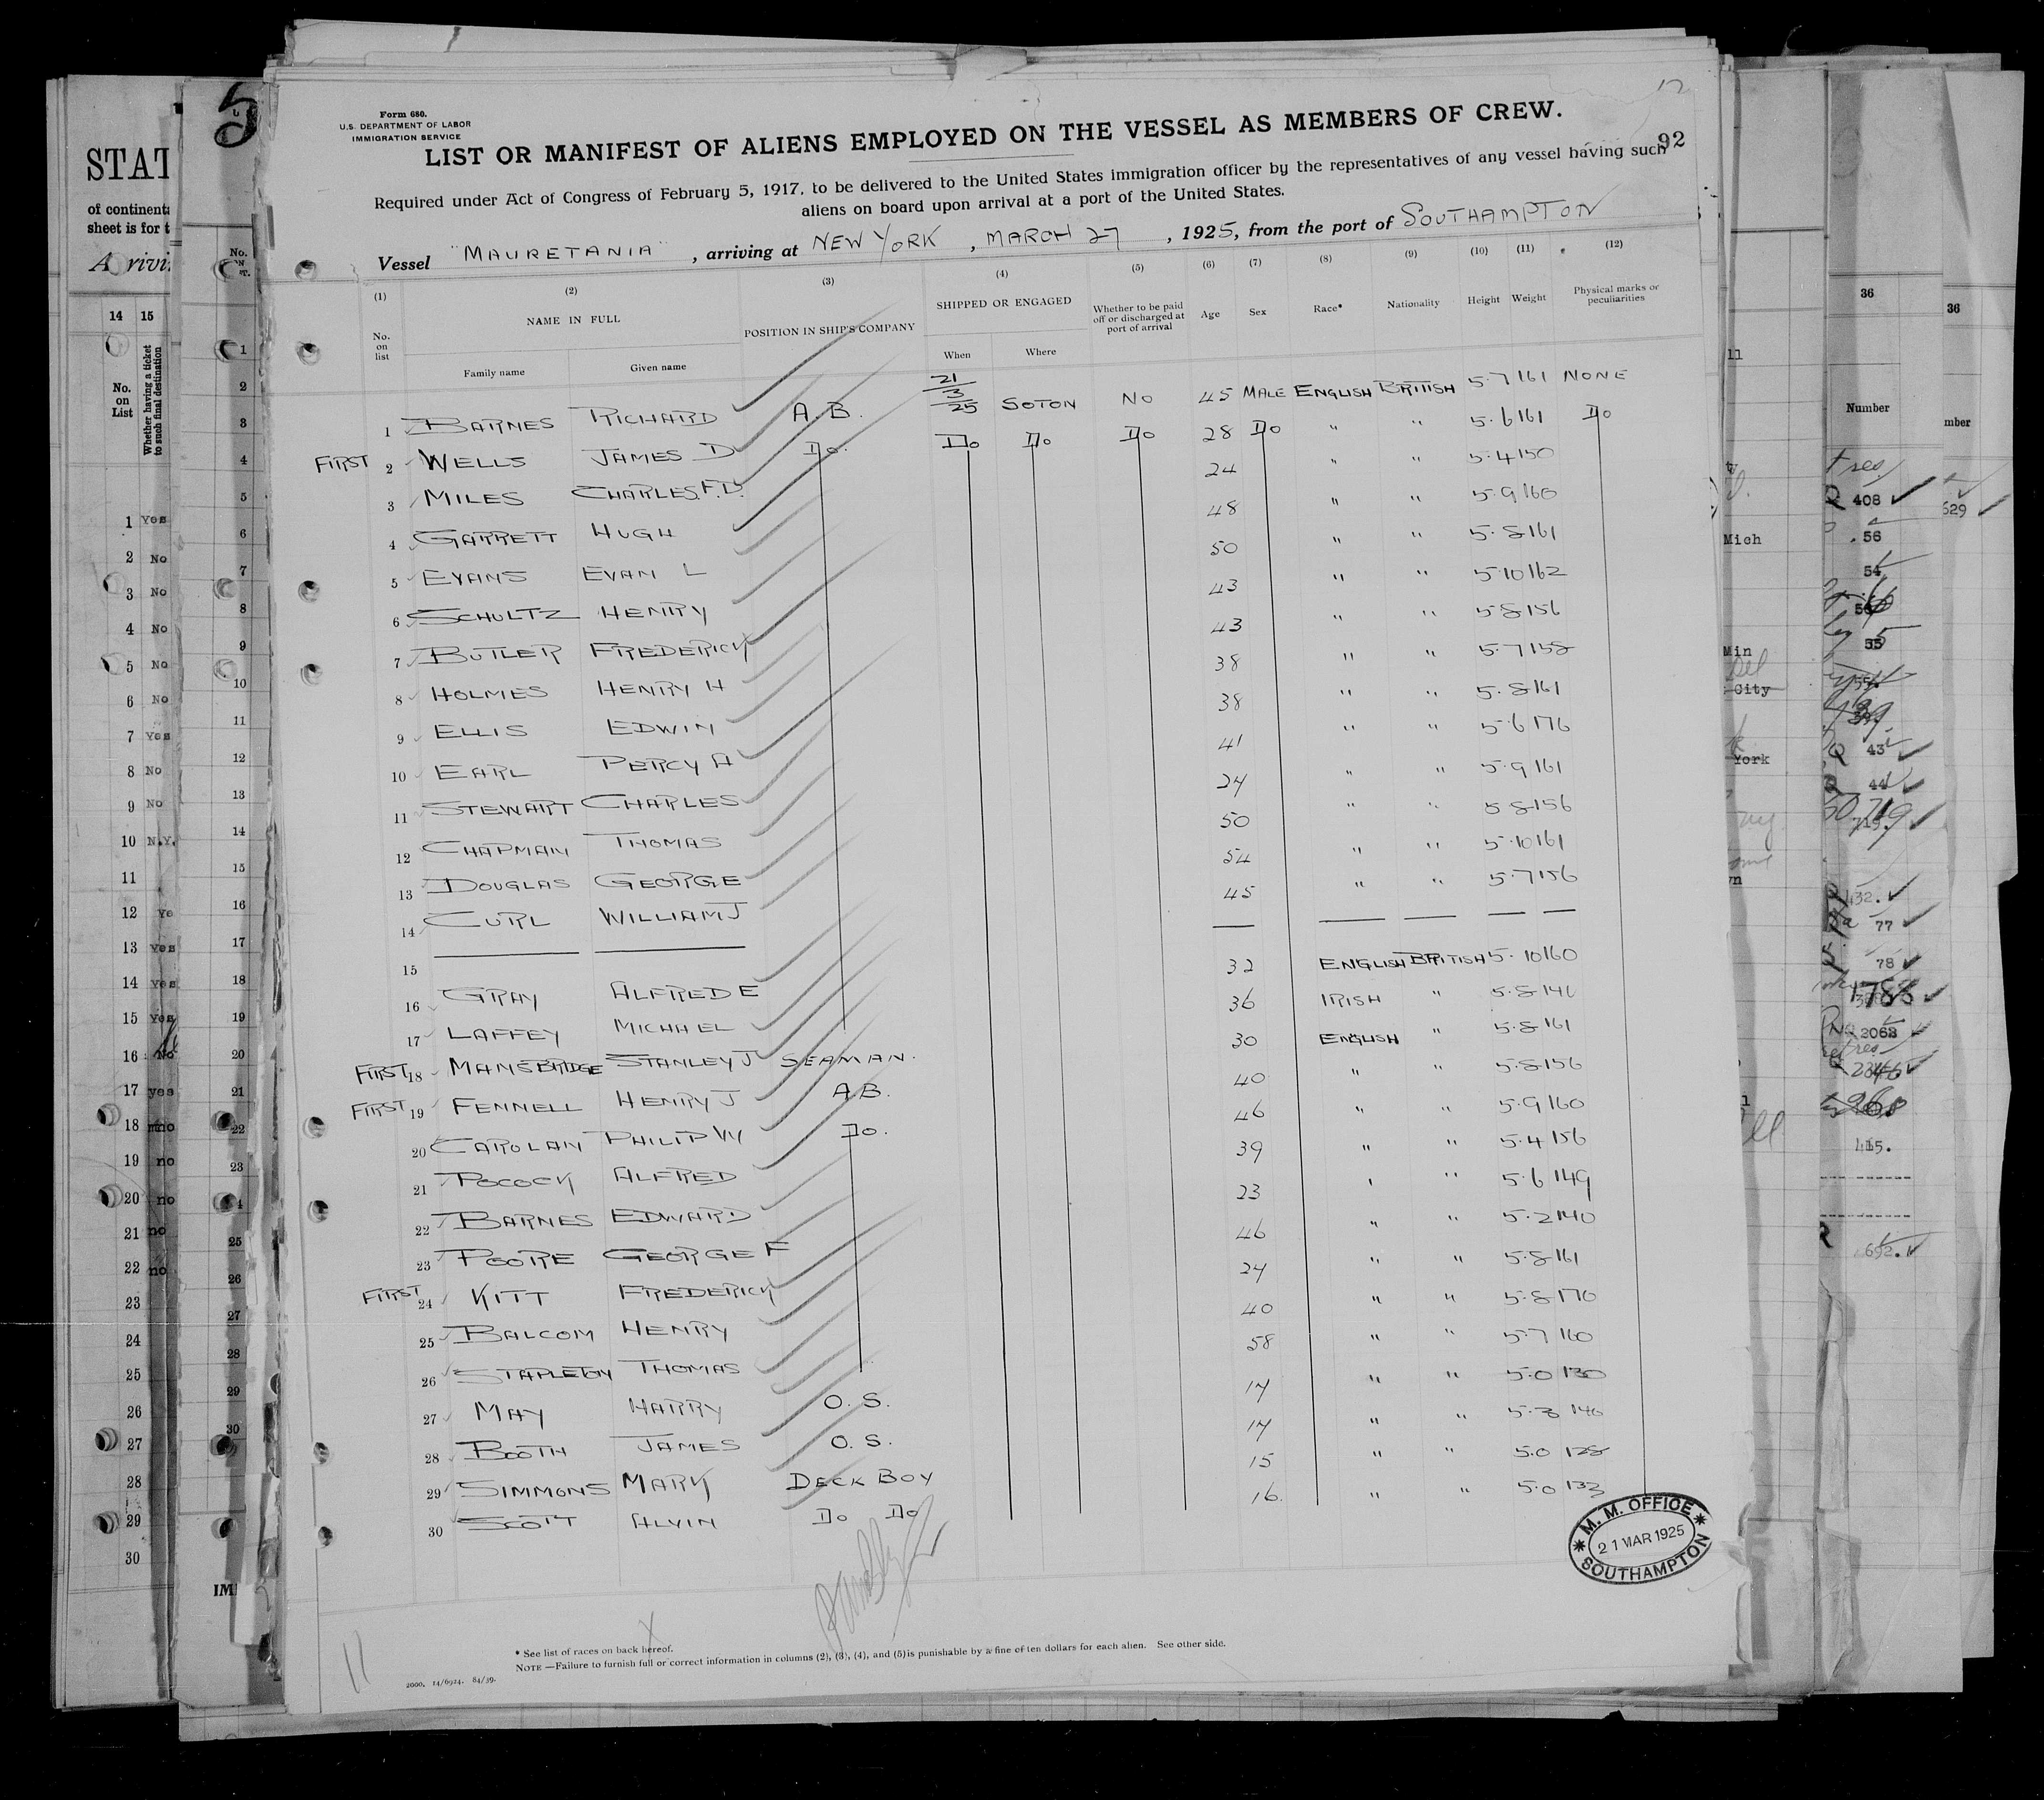 Form 680.
U.S. DEPARTMENT OF LABOR
IMMIGRATION SERVICE
92
LIST OR MANIFEST OF ALIENS EMPLOYED ON THE VESSEL AS MEMBERS OF CREW.
Required under Act of Congress of February 5, 1917, to be delivered to the United States immigration officer by the representatives of any vessel having such
aliens on board upon arrival at a port of the United States.
Vessel "MAURETANIA", arriving at NEW YORK, MARCH 27, 1925, from the port of SOUTHAMPTON
(1) (2) (3) (4) (5) (6) (7) (8) (9) (10) (11) (12)
No. on list NAME IN FULL POSITION IN SHIP'S COMPANY SHIPPED OR ENGAGED Whether to be paid off or discharged at port of arrival Age Sex Race* Nationality Height Weight Physical marks or peculiarities
Family name Given name When Where
1 BARNES RICHARD A.B. 21/3/25 SOTON NO 45 MALE ENGLISH BRITISH 5.7 161 NONE
FIRST 2 WELLS JAMES D Do. Do Do Do 28 Do " " 5.6 161 Do
3 MILES CHARLES.F.D. 24 " " 5.4 150
4 GARRETT HUGH 48 " " 5.9 160
5 EVANS EVAN L 50 " " 5.8 161
6 SCHULTZ HENRY 43 " " 5.10 162
7 BUTLER FREDERICK 43 " " 5.8 156
8 HOLMES HENRY H 38 " " 5.7 158
9 ELLIS EDWIN 38 " " 5.8 161
10 EARL PERCY A 41 " " 5.6 176
11 STEWART CHARLES 24 " " 5.9 161
12 CHAPMAN THOMAS 50 " " 5.8 156
13 DOUGLAS GEORGE 54 " " 5.10 161
14 CURL WILLIAM J 45 " " 5.7 156
15 — — — — — — —
16 GRAY ALFRED E 32 ENGLISH BRITISH 5.10 160
17 LAFFEY MICHAEL 36 IRISH " 5.8 146
FIRST 18 MANSBRIDGE STANLEY J SEAMAN. 30 ENGLISH " 5.8 161
FIRST 19 FENNELL HENRY J A.B. 40 " " 5.8 156
20 CAROLAN PHILIP W Do. 46 " " 5.9 160
21 POCOCK ALFRED 39 " " 5.4 156
22 BARNES EDWARD 23 " " 5.6 149
23 POORE GEORGE F 46 " " 5.2 140
FIRST 24 KITT FREDERICK 24 " " 5.8 161
25 BALCOM HENRY 40 " " 5.8 170
26 STAPLETON THOMAS 58 " " 5.7 160
27 MAY HARRY O.S. 17 " " 5.0 130
28 BOOTH JAMES O.S. 17 " " 5.3 140
29 SIMMONS MARK DECK BOY 15 " " 5.0 128
30 SCOTT ALVIN Do Do 16. " " 5.0 133
M. M. OFFICE
21 MAR 1925
SOUTHAMPTON
* See list of races on back hereof.
NOTE —Failure to furnish full or correct information in columns (2), (3), (4), and (5) is punishable by a fine of ten dollars for each alien. See other side.
2000. 14/6924. 84/39.
11